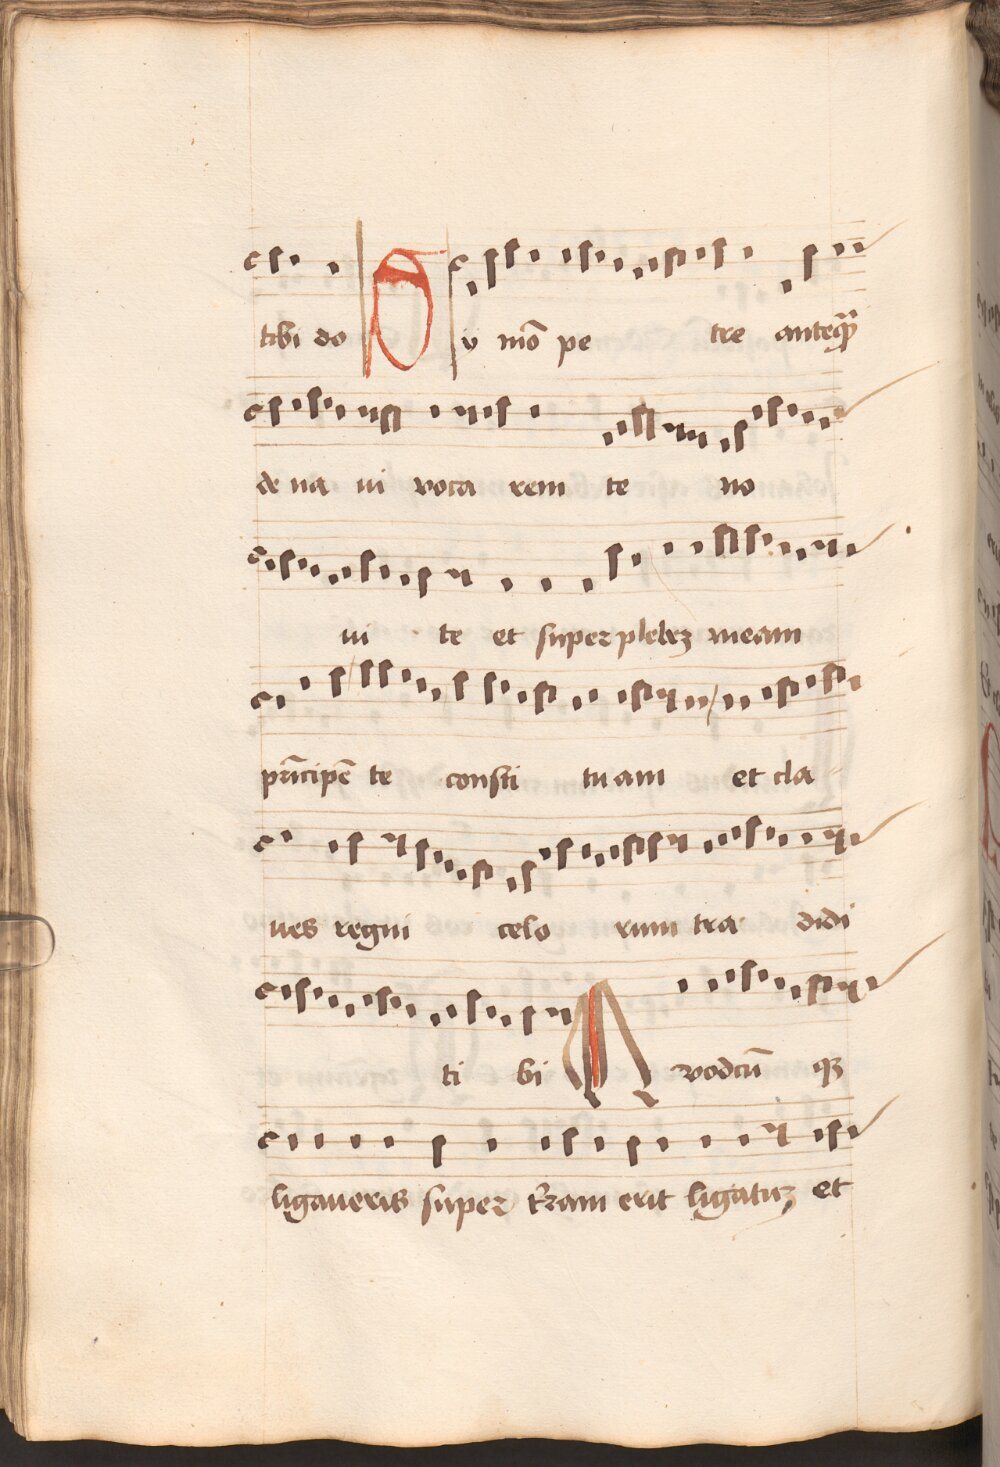 tibi do Sy mō pe tre anteq̃
de na ui voca rem te no
ui te et super plebeꝫ meam
pͥncipē te consti tuam et cla
ues regni celo rum tra didi
ti bi Quodcū qꝫ
ligaueris super t̓ram erit ligatuꝫ et